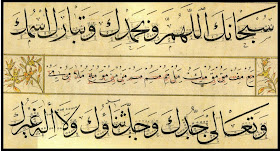 سبحانك اللهم وبحمدك وتبارك اسمك
وتعالى جدك وجل ثناؤك ولا إله غيرك